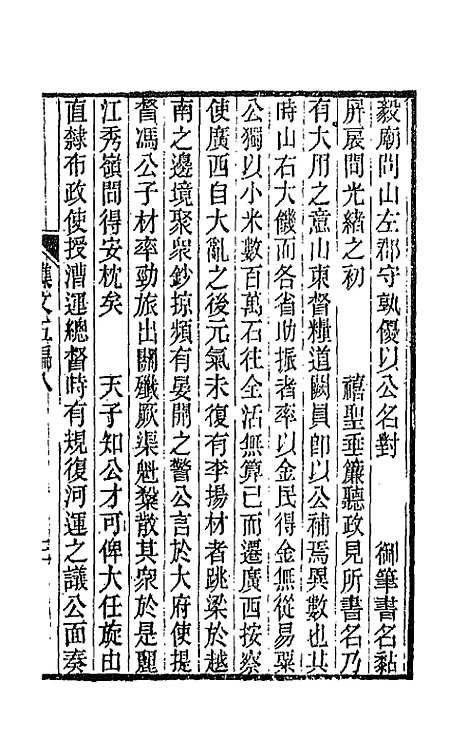 毅廟問山左郡守孰優以公名對　　　御筆書名黏
屏扆間光緒之初　　　禧聖垂簾聽政見所書名乃
有大用之意山東督糧道闕員卽以公補焉異數也其
時山右大饑而各省助振者率以金民得金無從易粟
公獨以小米數百萬石往全活無算已而遷廣西按察
使廣西自大亂之後元氣未復有李揚材者跳梁於越
南之邊境聚衆鈔掠頻有晏開之警公言於大府使提
督馮公子材率勁旅出關殲厥渠魁黎散其衆於是麗
江秀嶺間得安枕矣　　　天子知公才可俾大任旋由
直隸布政使授漕運總督時有規復河運之議公面奏
襍文五編八